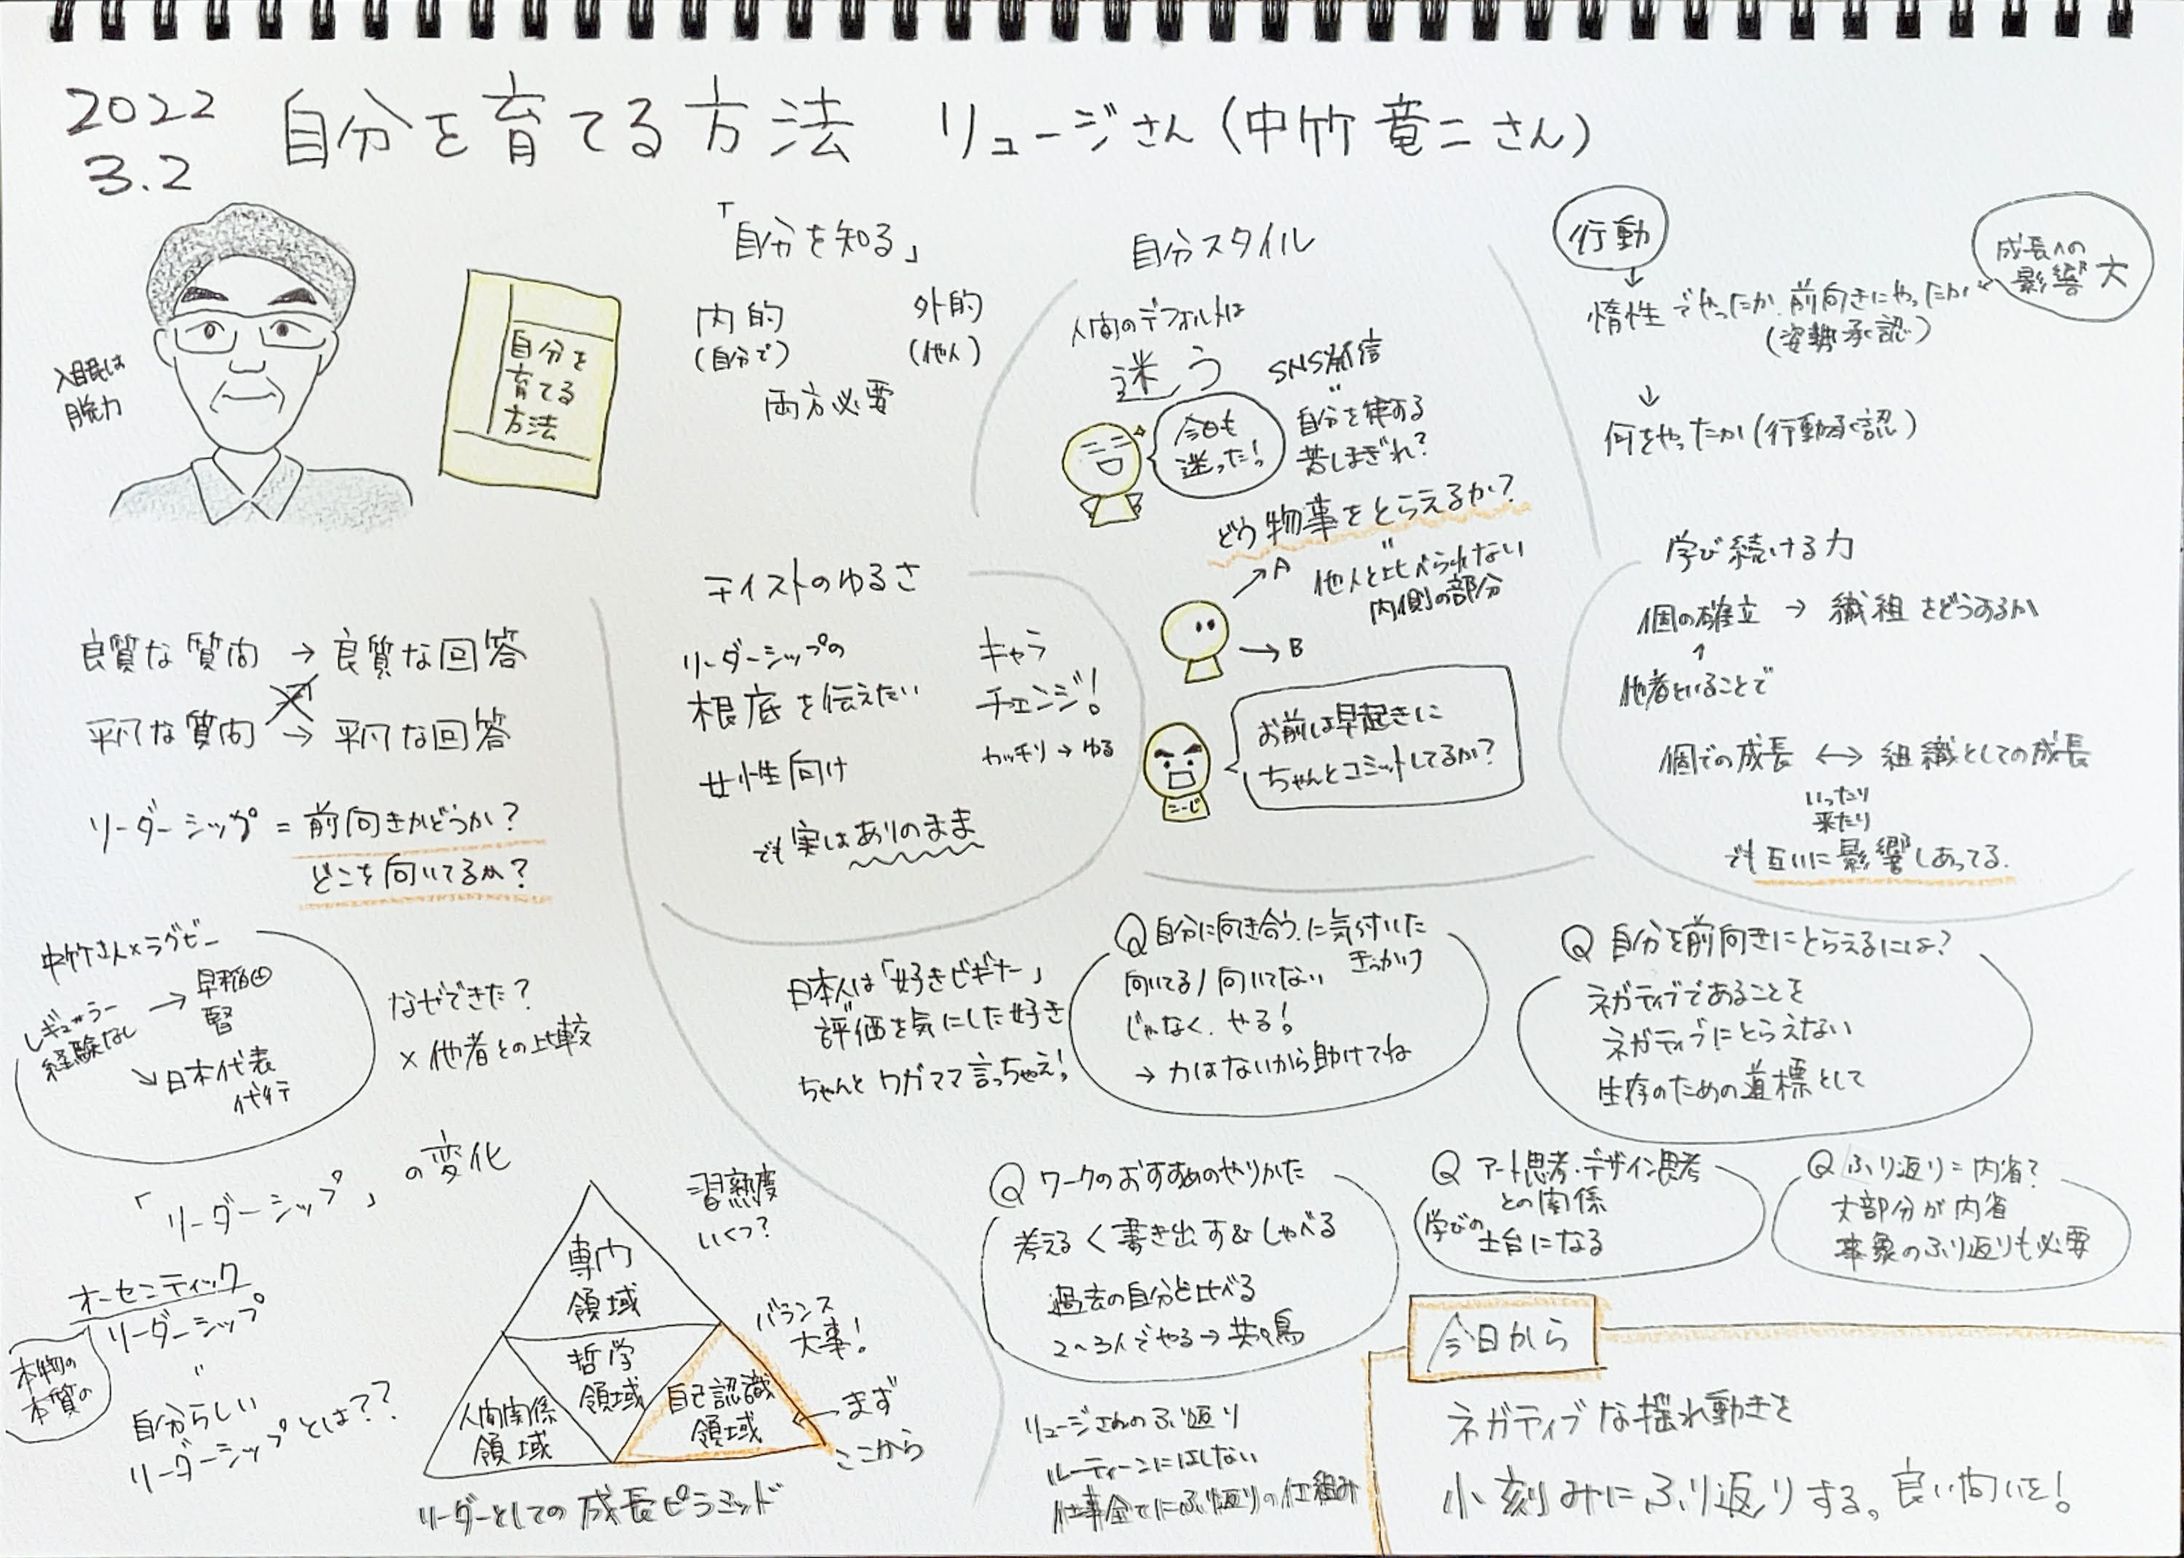 2022
3.2
自分を育てる方法 リュージさん(中竹竜二さん)
入眠は
脱力
自分を
育てる
方法
良質な質問 → 良質な回答
平凡な質問 → 平凡な回答
リーダーシップ = 前向きかどうか?
どこを向いてるか?
中竹さん×ラグビー
レギュラー
経験なし
→ 早稲田
督
↘ 日本代表
代行
なぜできた?
×他者との比較
「リーダーシップ」の変化
オーセンティック
リーダーシップ
〃
本物の
本質の
自分らしい
リーダーシップとは??
専門
領域
哲学
領域
人間関係
領域
自己認識
領域
習熟度
いくつ?
バランス
大事!
← まず
ここから
リーダーとしての成長ピラミッド
「自分を知る」
内的
(自分で)
外的
(他人)
両方必要
テイストのゆるさ
リーダーシップの
根底を伝えたい
女性向け
キャラ
チェンジ!
カッチリ→ゆる
でも実はありのまま
自分スタイル
人間のデフォルトは
迷う
今日も
迷った!
SNS発信
〃
自分を律する
苦しまぎれ?
どう物事をとらえるか?
〃
他人と比べられない
内側の部分
→A
→B
お前は早起きに
ちゃんとコミットしてるか?
行動
↓
惰性でやったか 前向きにやったか
(姿勢承認)
成長への
影響大
↓
何をやったか(行動承認)
学び続ける力
個の確立 → 織組をどうするか
↑
他者といることで
個での成長 ↔ 組織としての成長
いったり
来たり
でも互いに影響しあってる.
日本人は「好きビギナー」
評価を気にした好き
ちゃんとワガママ言っちゃえ!
Q 自分に向き合う、に気付いた
きっかけ
向いてる/向いてない
じゃなく、やる!
→ 力はないから助けてね
Q 自分を前向きにとらえるには?
ネガティブであることを
ネガティブにとらえない
生存のための道標として
Q ワークのおすすめのやりかた
考える<書き出す&しゃべる
過去の自分と比べる
2~3人でやる→共鳴
Q アート思考・デザイン思考
との関係
学びの
土台になる
Q ふり返り=内省?
大部分が内省
事象のふり返りも必要
リュージさんのふり返り
ルーティーンにはしない
仕事全てにふり返りの仕組み
今日から
ネガティブな揺れ動きを
小刻みにふり返りする。良い問いを!